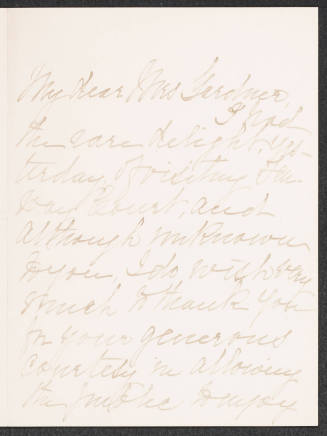 My dear Mrs Gardner,
I had
the rare delight, yes-
terday, of visiting Fen-
way Court, and
although unknown
to you, I do wish very
much to thank you
for your generous
courtesy in allowing
the public to enjoy